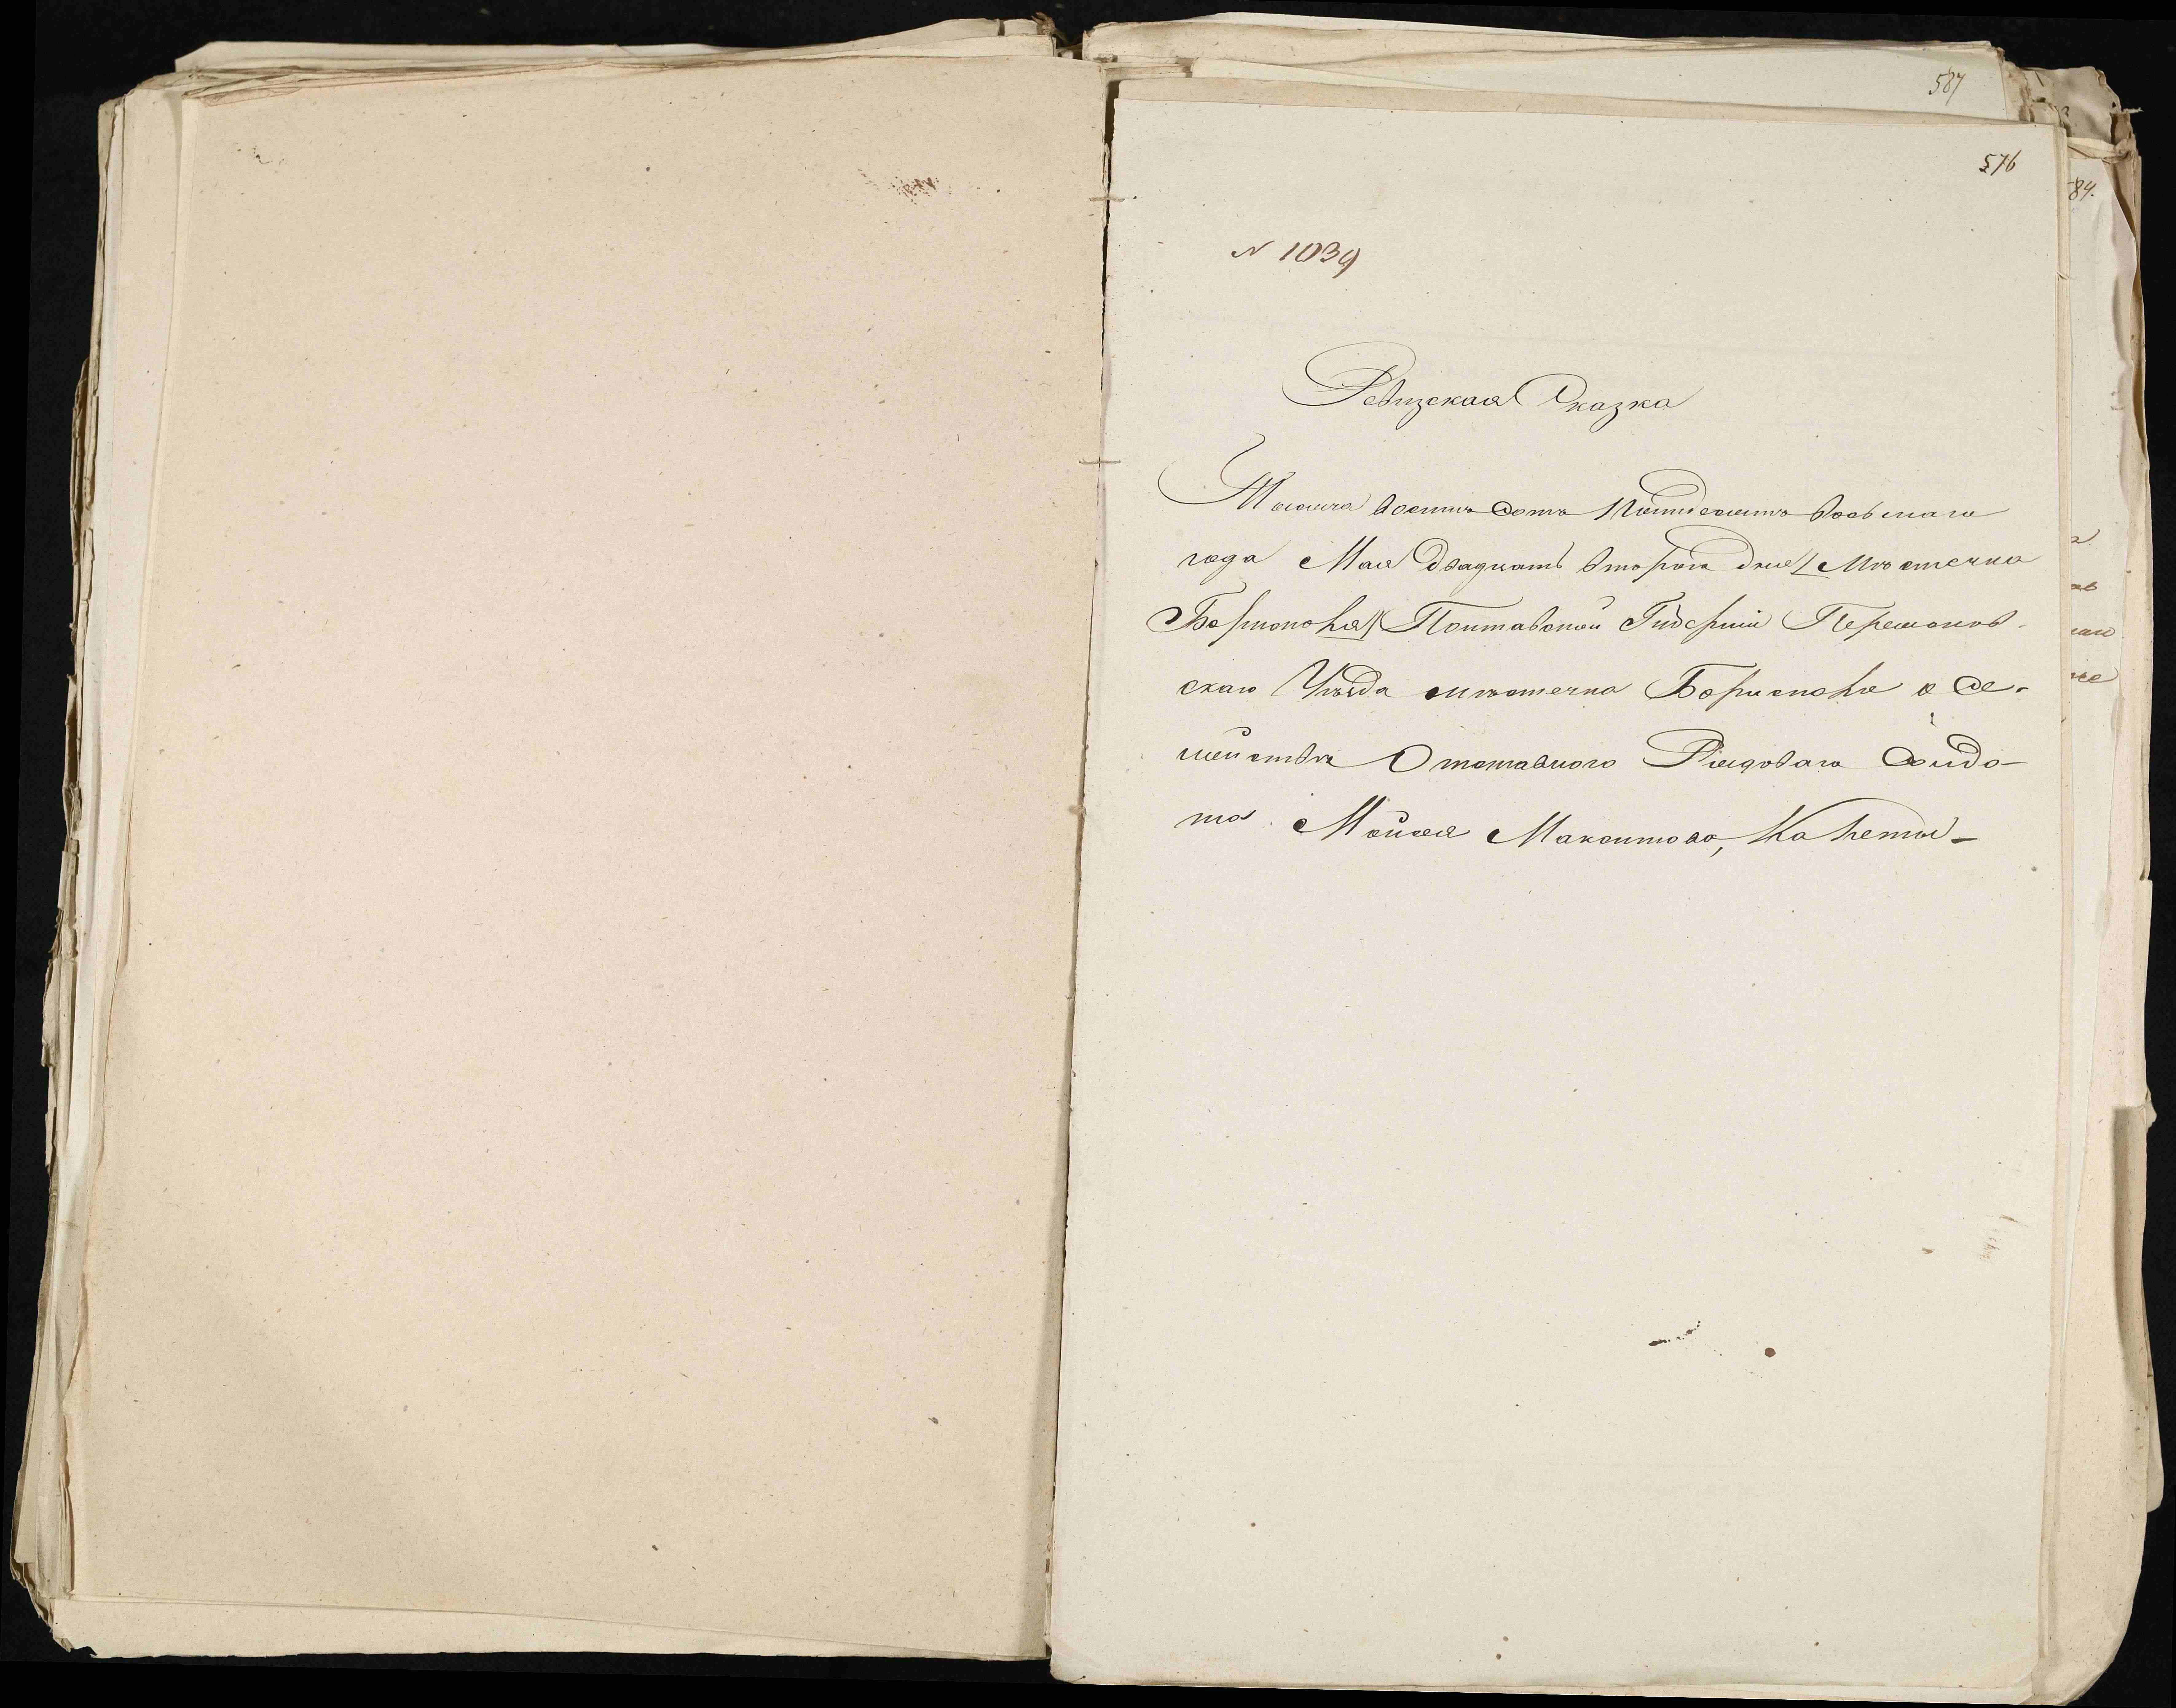 587
576
84.
N 1039
Ревизская Сказка
Тысяча восемь сотъ Пятидесятъ восьмаго
года Мая двадцать втораго дня Местечка
Борисполя Полтавской Губерніи Переяслов-
скаго Уезда местечка Борисполя о се-
мействе Отставного Рядоваго Солда-
та Мойсея Максимова,